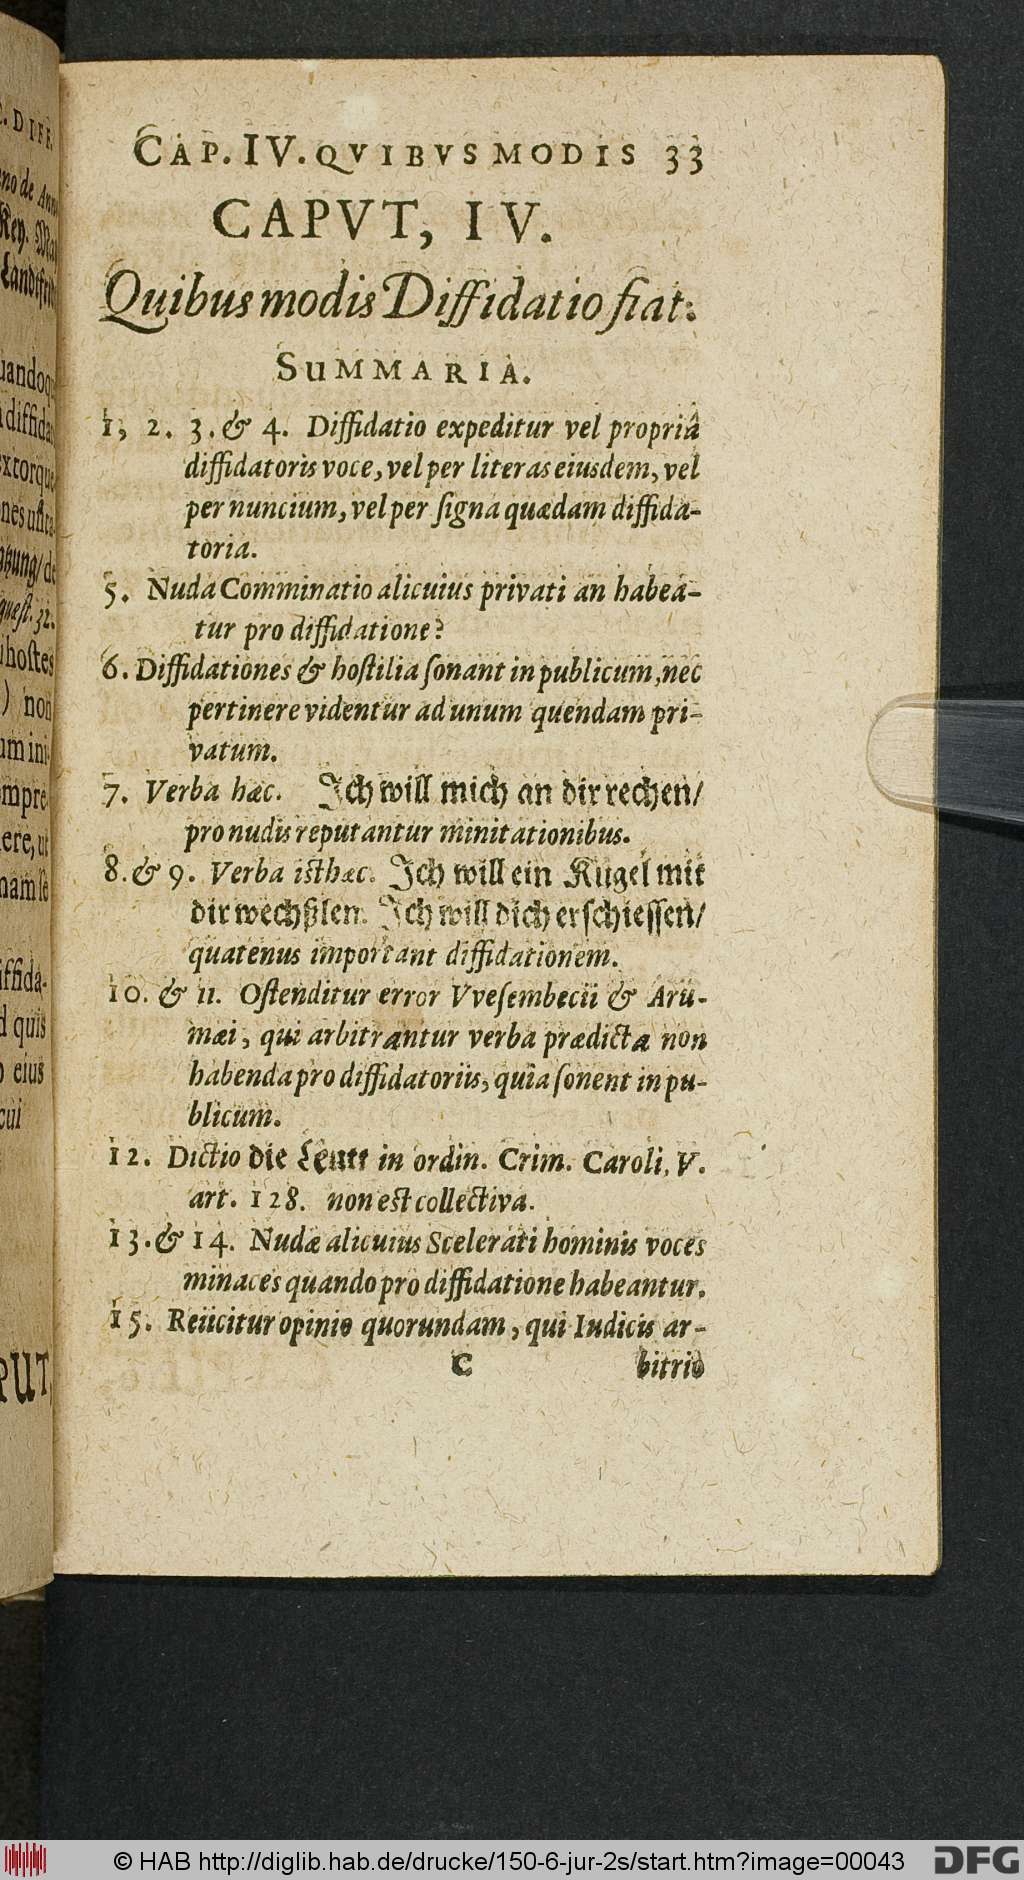 CAP. IV. QVIBVS MODIS 33
CAPVT, IV.
Quibus modis Diffidatio fiat:
SUMMARIA.
1, 2. 3. & 4. Diffidatio expeditur vel propriâ
diffidatoris voce, vel per literas eiusdem, vel
per nuncium, vel per signa quædam diffida-
toria.
5. Nuda Comminatio alicuius privati an habea-
tur pro diffidatione?
6. Diffidationes & hostilia sonant in publicum, nec
pertinere videntur ad unum quendam pri-
vatum.
7. Verba hæc. Ich will mich an dir rechen/
pro nudis reputantur minitationibus.
8. & 9. Verba isthæc. Ich will ein Kugel mit
dir wechßlen. Ich will dich erschiessen/
quatenus important diffidationem.
10. & 11. Ostenditur error Vvesembecii & Aru-
mæi, qui arbitrantur verba prædicta non
habenda pro diffidatoriis, quia sonent in pu-
blicum.
12. Dictio die Leutt in ordin. Crim. Caroli, V.
art. 128. non est collectiva.
13. & 14. Nudæ alicuius Scelerati hominis voces
minaces quando pro diffidatione habeantur.
15. Reiicitur opinio quorundam, qui Iudicis ar-
C bitrio
. DIFF.
no de Ann
Key. Ma
Landtfrid
uandoq
diffida
extorque
nes usita
gung/ de
quæst. 32.
hostes
) non
um ini-
ompre-
ere, ut
nam se
iffida-
d quis
o eius
cui
PUT,
© HAB http://diglib.hab.de/drucke/150-6-jur-2s/start.htm?image=00043
DFG